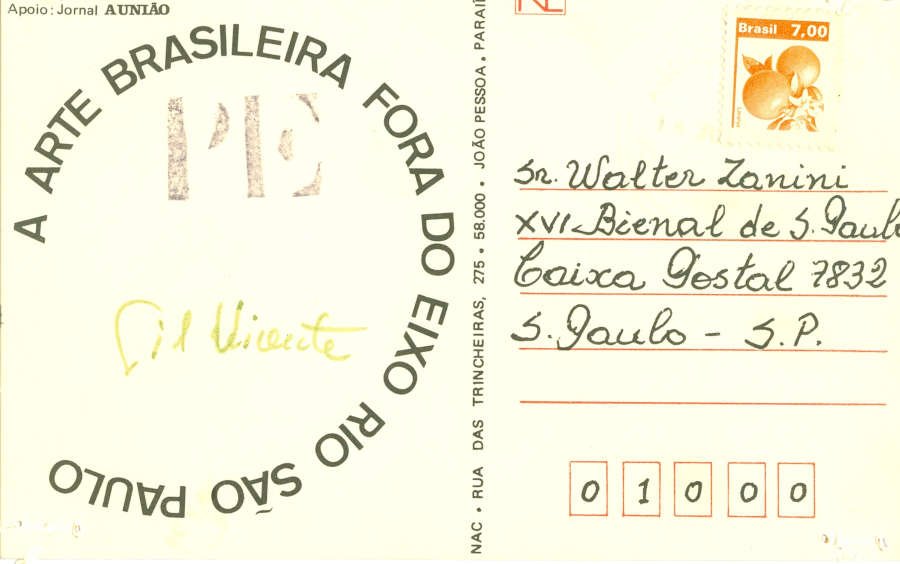 Apoio: Jornal A UNIÃO
A ARTE BRASILEIRA FORA DO EIXO RIO SÃO PAULO
PE
Gil Vicente
NAC • RUA DAS TRINCHEIRAS, 275 • 58.000 • JOÃO PESSOA • PARAÍ
Brasil 7,00
Sr. Walter Zanini
XVI-Bienal de S. Paulo
Caixa Postal 7832
S. Paulo - S.P.
0 1 0 0 0